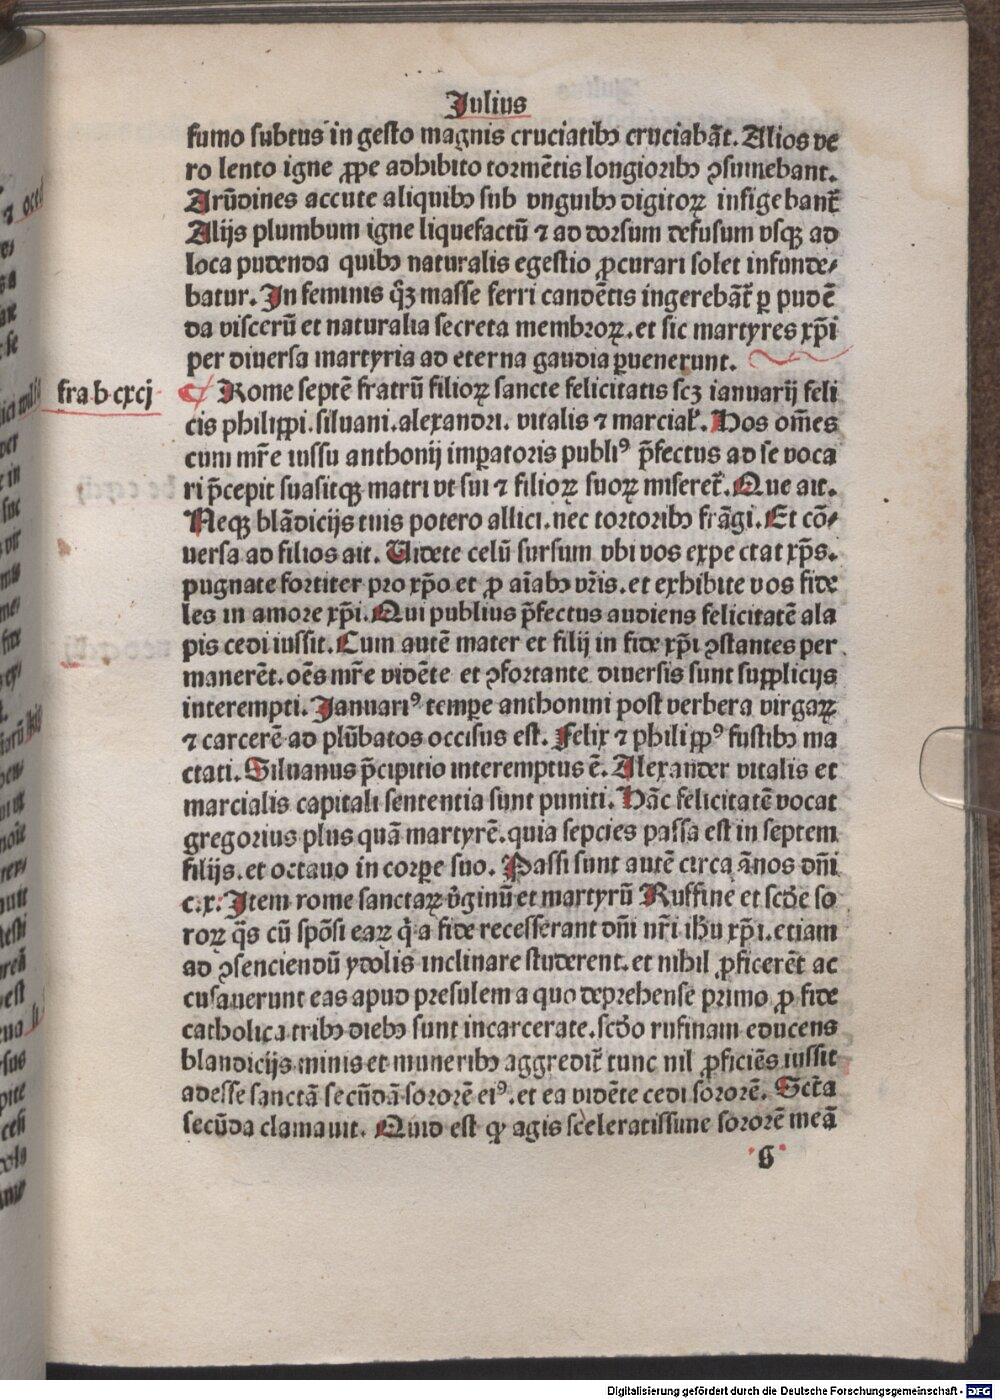 Julius
fumo subtus in gesto magnis cruciatibꝰ cruciabāt. Alios ve
ro lento igne ꝓpe adhibito tormētis longioribꝰ ꝯsumebant.
Arūdines accute aliquibꝰ sub vnguibꝰ digitoꝝ infigebant᷑
Alijs plumbum igne liquefactū ⁊ ad dorsum defusum vsqꝫ ad
loca pudenda quibꝰ naturalis egestio ꝓcurari solet infunde⸗
batur. In feminis q̄ꝫ masse ferri candētis ingerebāt᷑ ꝑ pudē
da viscerū et naturalia secreta membroꝝ. et sic martyres xp̄i
per diuersa martyria ad eterna gaudia ꝑuenerunt.
fra b cxcj
Rome septē fratrū filioꝝ sancte felicitatis scꝫ ianuarij feli
cis philippi. siluani. alexandri. vitalis ⁊ marcial̛. Hos om̄es
cum mr̄e iussu anthonij imꝑatoris publiꝰ p̄fectus ad se voca
ri p̄cepit suasitqꝫ matri vt sui ⁊ filioꝝ suoꝝ miseret᷑. Que ait.
Neqꝫ blādicijs tuis potero allici. nec tortoribꝰ frāgi. Et cō⸗
uersa ad filios ait. Uidete celū sursum vbi vos expectat xp̄s.
pugnate fortiter pro xp̄o et ꝓ aīabꝰ vr̄is. et exhibite vos fide
les in amore xp̄i. Qui publius p̄fectus audiens felicitatē ala
pis cedi iussit. Cum autē mater et filij in fide xp̄i ꝯstantes per
manerēt. oēs mr̄e vidēte et ꝯfortante diuersis sunt supplicijs
interempti. Januariꝰ tempe anthonini post verbera virgaꝝ
⁊ carcerē ad plūbatos occisus est. Felix ⁊ philippꝰ fustibꝰ ma
ctati. Siluanus p̄cipitio interemptus ē. Alexander vitalis et
marcialis capitali sententia sunt puniti. Hāc felicitatē vocat
gregorius plus quā martyrē. quia sepcies passa est in septem
filijs. et octauo in corꝑe suo. Passi sunt autē circa ānos dn̄i
c.x. Item rome sanctaꝝ v̛ginū et martyrū Ruffine et scd̄e so
roꝝ q̄s cū spōsi eaꝝ q̇ a fide recesserant dn̄i nr̄i ihū xp̄i. etiam
ad ꝯsenciendū ydolis inclinare studerent. et nihil ꝓficerēt ac
cusauerunt eas apud presulem a quo deprehense primo ꝓ fide
catholica tribꝰ diebꝰ sunt incarcerate. scd̄o rufinam educens
blandicijs minis et muneribꝰ aggredit᷑ tunc nil ꝓficiēs iussit
adesse sanctā secūdā sororē eiꝰ. et ea vidēte cedi sororē. Sct̄a
secūda clamauit. Quid est ꝙ agis sceleratissime sororē meā
G
Digitalisierung gefördert durch die Deutsche Forschungsgemeinschaft - DFG